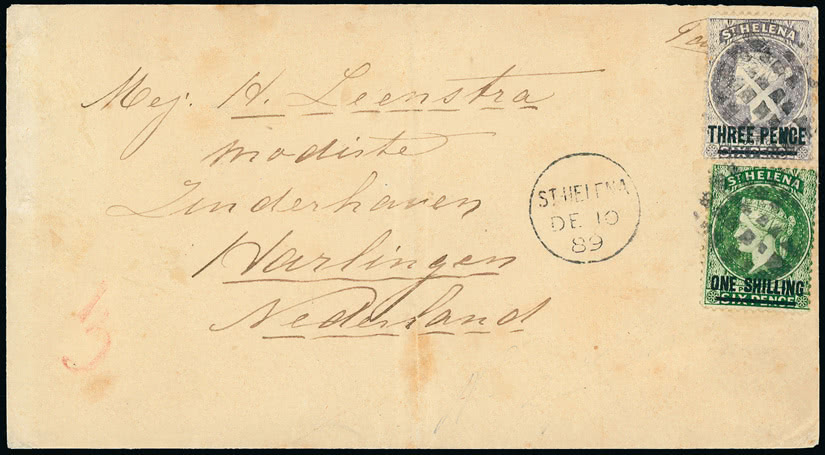 ST HELENA
THREE PENCE
SIX PENCE
Mej. H. Leenstra
modiste
Zuiderhaven
Harlingen
Nederland
ST. HELENA
DE 10
89
ST HELENA
ONE SHILLING
SIX PENCE
3